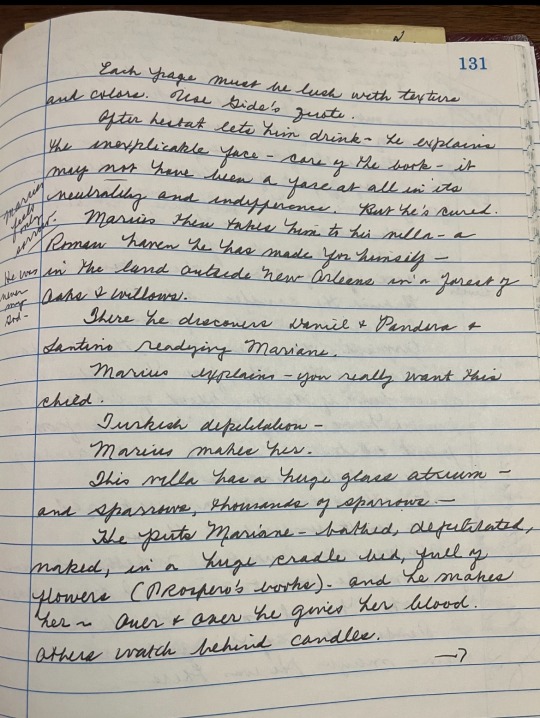 131
Each page must be lush with texture
and colors. Use Gide's quote.
After Lestat lets him drink - he explains
the inexplicable face - core of the book - it
may not have been a face at all in its
neutrality and indifference. But he's cured.
Marius then takes him to his villa - a
Roman haven he has made for himself -
in the land outside New Orleans in a forest of
oaks & willows.
Marius
feels
only
sorrow.
He was
never
my
God -
There he discovers Daniel & Pandora &
Santino readying Mariane.
Marius explains - you really want this
child.
Turkish depilitation -
Marius makes her.
This villa has a huge glass atrium -
and sparrows, thousands of sparrows -
He puts Mariane - bathed, depilitated,
naked, in a huge cradle bed, full of
flowers (Prospero's books) - and he makes
her ~ over & over he gives her blood.
Others watch behind candles.
→